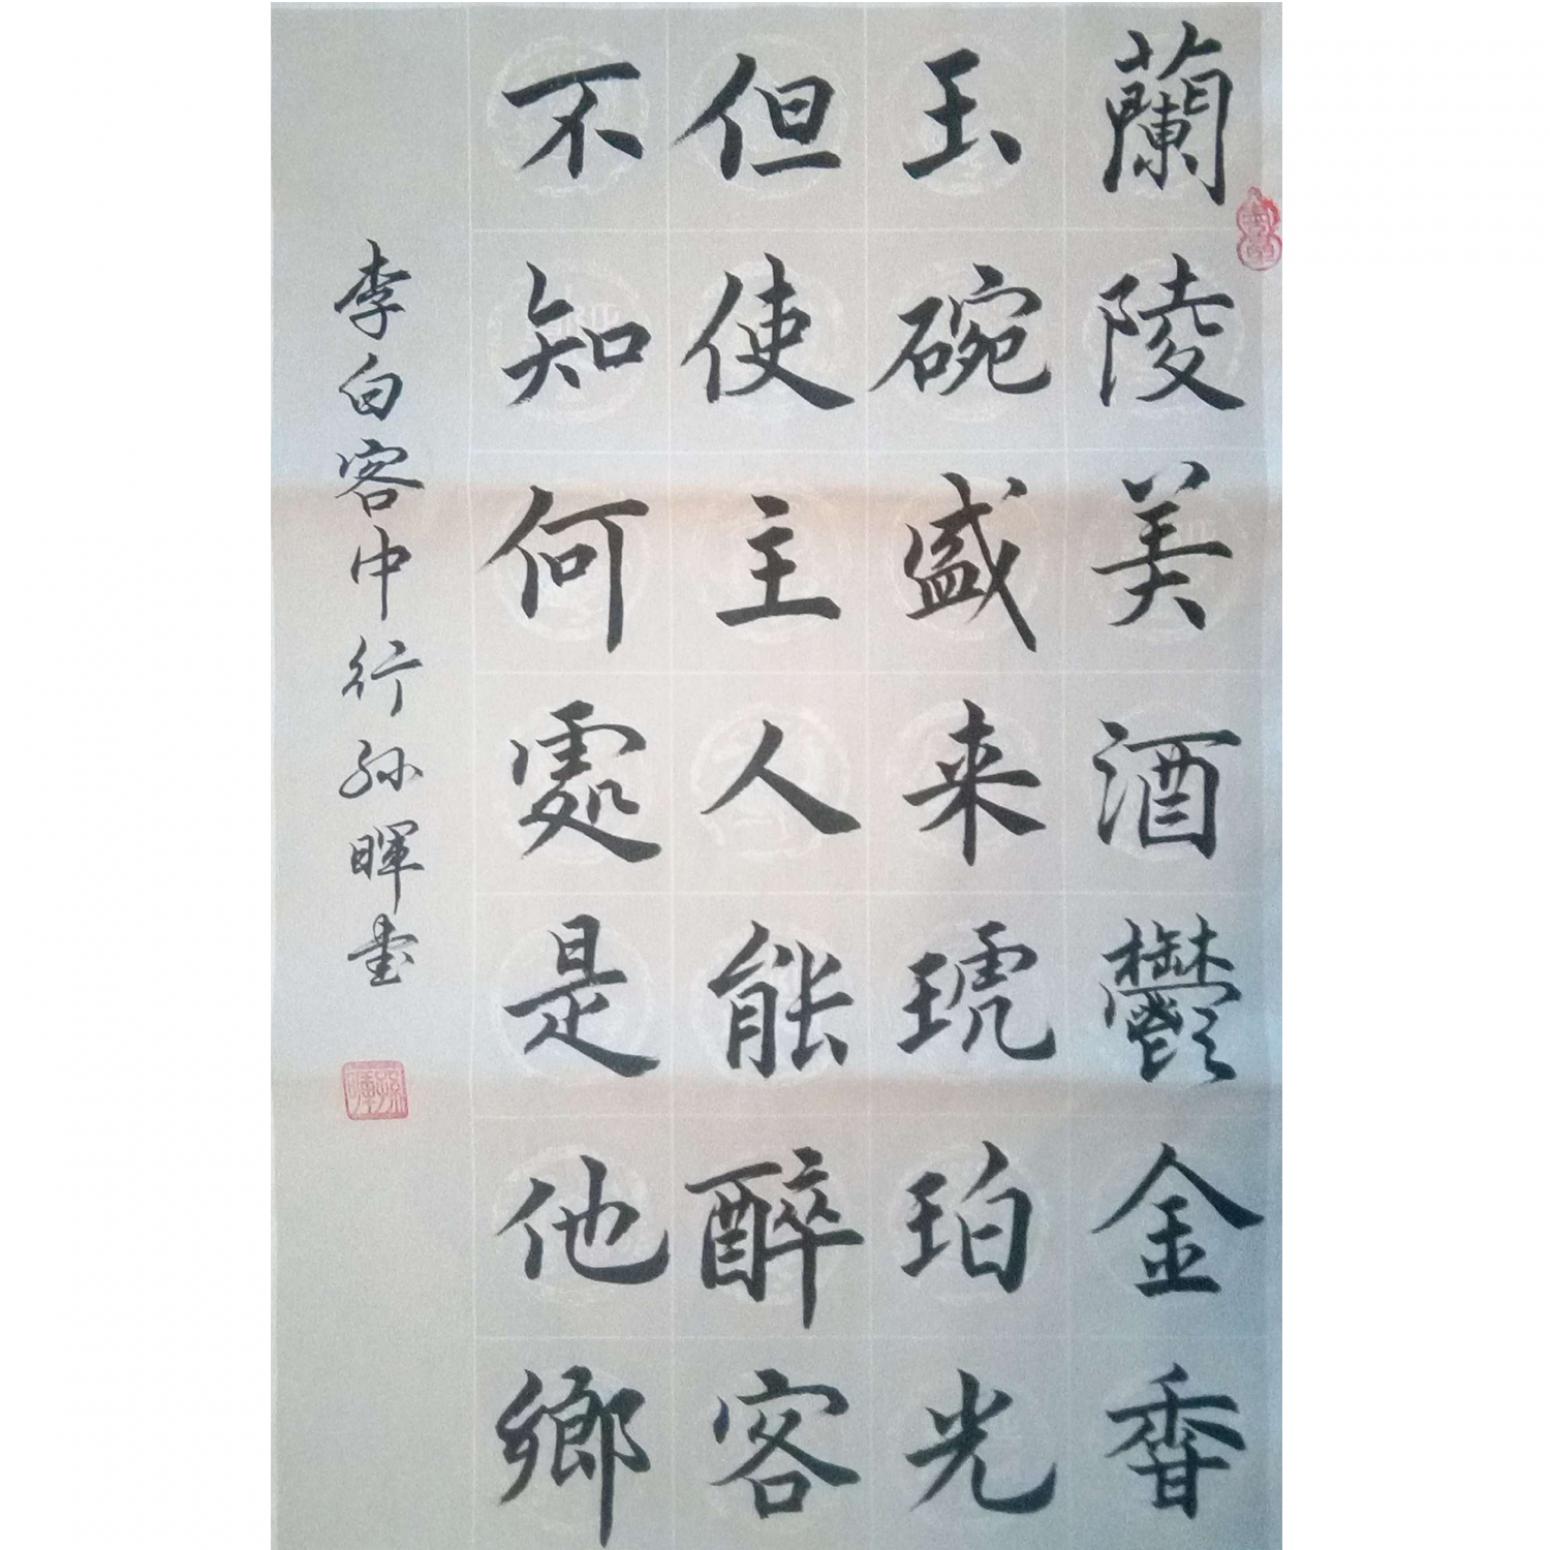 蘭陵美酒鬱金香
玉碗盛来琥珀光
但使主人能醉客
不知何處是他鄉
李白客中行孙暉书
孫暉